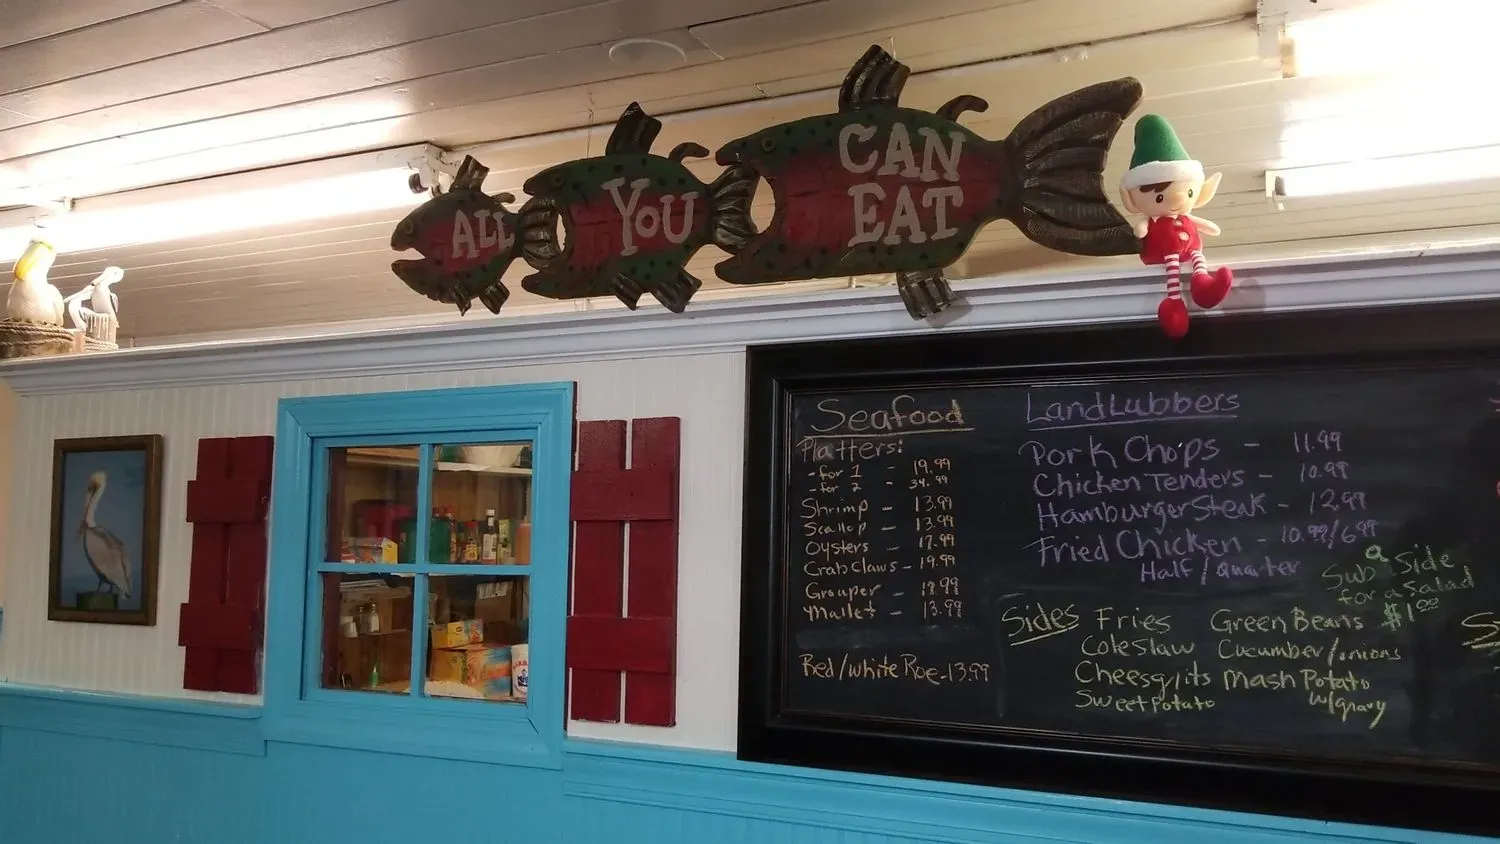 ALL
YOU
CAN
EAT
Seafood
Platters:
-for 1 - 19.99
-for 2 - 34.99
Shrimp - 13.99
Scallop - 13.99
Oysters - 17.99
Crab Claws - 19.99
Grouper - 18.99
Mullet - 13.99
Red/white Roe-13.99
LandLubbers
Pork Chops - 11.99
Chicken Tenders - 10.99
Hamburger Steak - 12.99
Fried Chicken - 10.99/6.99
Half/Quarter
Sub a Side
for a Salad
$1.00
Sides
Fries
Coleslaw
Cheesgrits
Sweet Potato
Green Beans
Cucumber/onions
Mash Potato
w/gravy